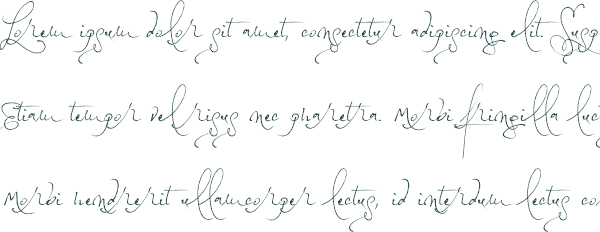 Lorem ipsum dolor sit amet, consectetur adipiscing elit. Susp
Etiam tempor vel risus nec pharetra. Morbi fringilla luc
Morbi hendrerit ullamcorper lectus, id interdum lectus co